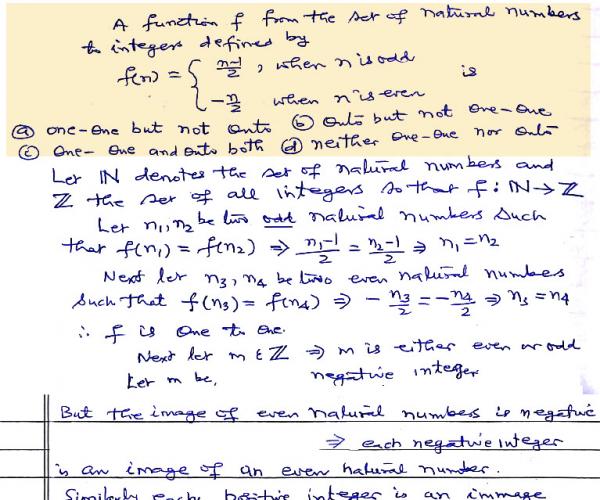 A function f from the set of natural numbers
to integers defined by
f(n) = { n-1/2, when n is odd
-n/2 when n is even is
(a) one-one but not onto (b) onto but not one-one
(c) one-one and onto both (d) neither one-one nor onto
Let IN denotes the set of natural numbers and
ℤ the set of all integers so that f : IN → ℤ
Let n₁, n₂ be two odd natural numbers such
that f(n₁) = f(n₂) ⇒ n₁-1/2 = n₂-1/2 ⇒ n₁ = n₂
Next let n₃, n₄ be two even natural numbers
such that f(n₃) = f(n₄) ⇒ -n₃/2 = -n₄/2 ⇒ n₃ = n₄
∴ f is one to one.
Next let m ∈ ℤ ⇒ m is either even or odd
Let m be, negative integer
But the image of even natural numbers is negative
⇒ each negative integer
is an image of an even natural number.
Similarly each positive integer is an immage